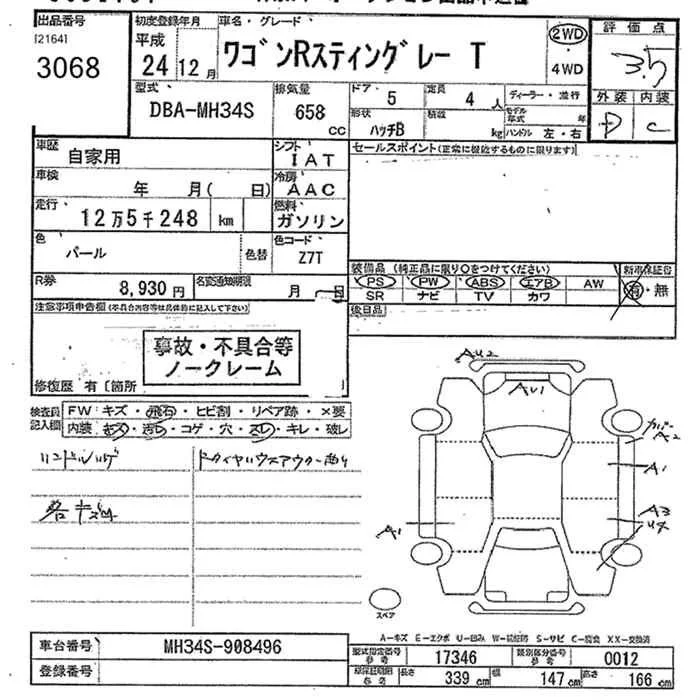 出品番号
[2164]
3068
初度登録年月
平成
24 12月
車名・グレード
ワゴンRスティングレー T
2WD
・
4WD
評価点
3.5
外装 内装
D C
型式
DBA-MH34S
排気量
658
CC
ドア
5
定員
4人
形状
ハッチB
積載
kg
ディーラー・並行
モデル年式 年
ハンドル 左・右
車歴
自家用
シフト
IAT
セールスポイント(正常に機能するものに限ります)
車検
年 月( 日)
冷房
AAC
走行
12万5千248 km
燃料
ガソリン
色
パール
色替
色コード
Z7T
R券
8,930円
名変通知期限
月 日
装備品(純正品に限り○をつけてください)
PS PW ABS エアB AW
SR ナビ TV カワ
新車保証書
有・無
後日品
注意事項申告欄(不具合内容等は具体的に記入して下さい)
事故・不具合等
ノークレーム
修復歴 有〔箇所
検査員
記入欄
FW キズ・飛石・ヒビ割・リペア跡・×要
内装 キズ・汚レ・コゲ・穴・スレ・キレ・破レ
ハンドルハゲ
各キズ凹
AU2
AU1
カバー
A2
A1
A3
U4
A1
スペア
A-キズ E-エクボ U-凹み W-補修跡 S-サビ C-腐食 XX-交換済
車台番号
MH34S-908496
登録番号
型式指定番号
参考
17346
類別区分番号
参考
0012
参考
長さ
339 cm
幅
147 cm
高さ
166 cm